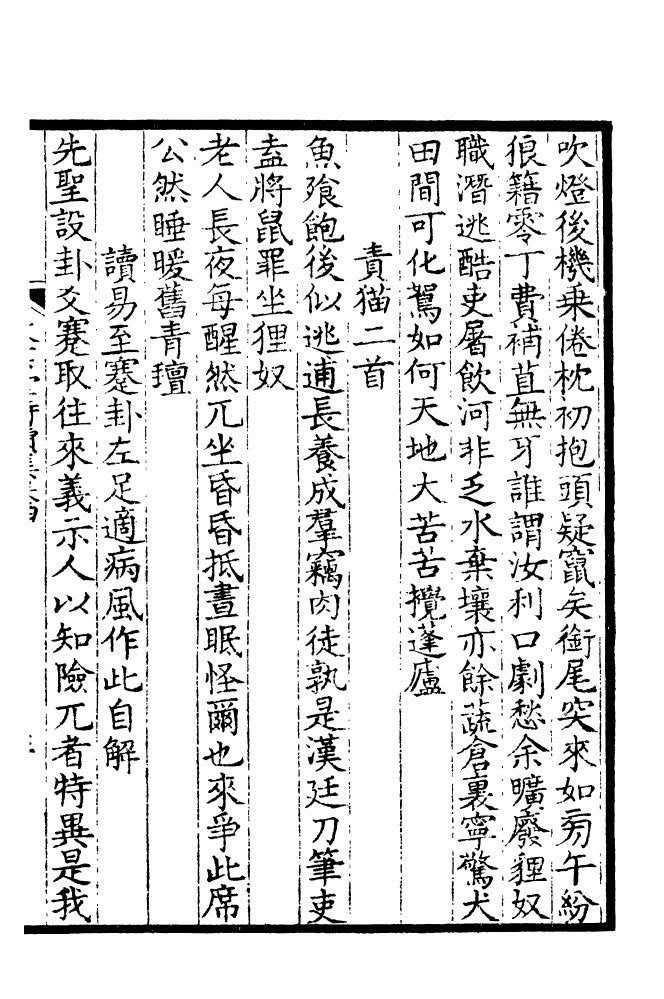 吹燈後機乗倦枕初抱頭疑竄矣銜尾突來如旁午紛
狼籍零丁費補苴無牙誰謂汝利口劇愁余曠廢貍奴
職潛逃酷吏屠飲河非乏水棄壤亦餘蔬倉裏寧驚犬
田間可化鴽如何天地大苦苦攪蓬廬
責猫二首
魚飱飽後似逃逋長養成羣竊肉徒孰是漢廷刀筆吏
盍將鼠罪坐狸奴
老人長夜每醒然兀坐昏昏抵晝眠怪爾也來爭此席
公然睡暖舊青氊
讀易至蹇卦左足適病風作此自解
先聖設卦爻蹇取往來義示人以知險兀者特異是我